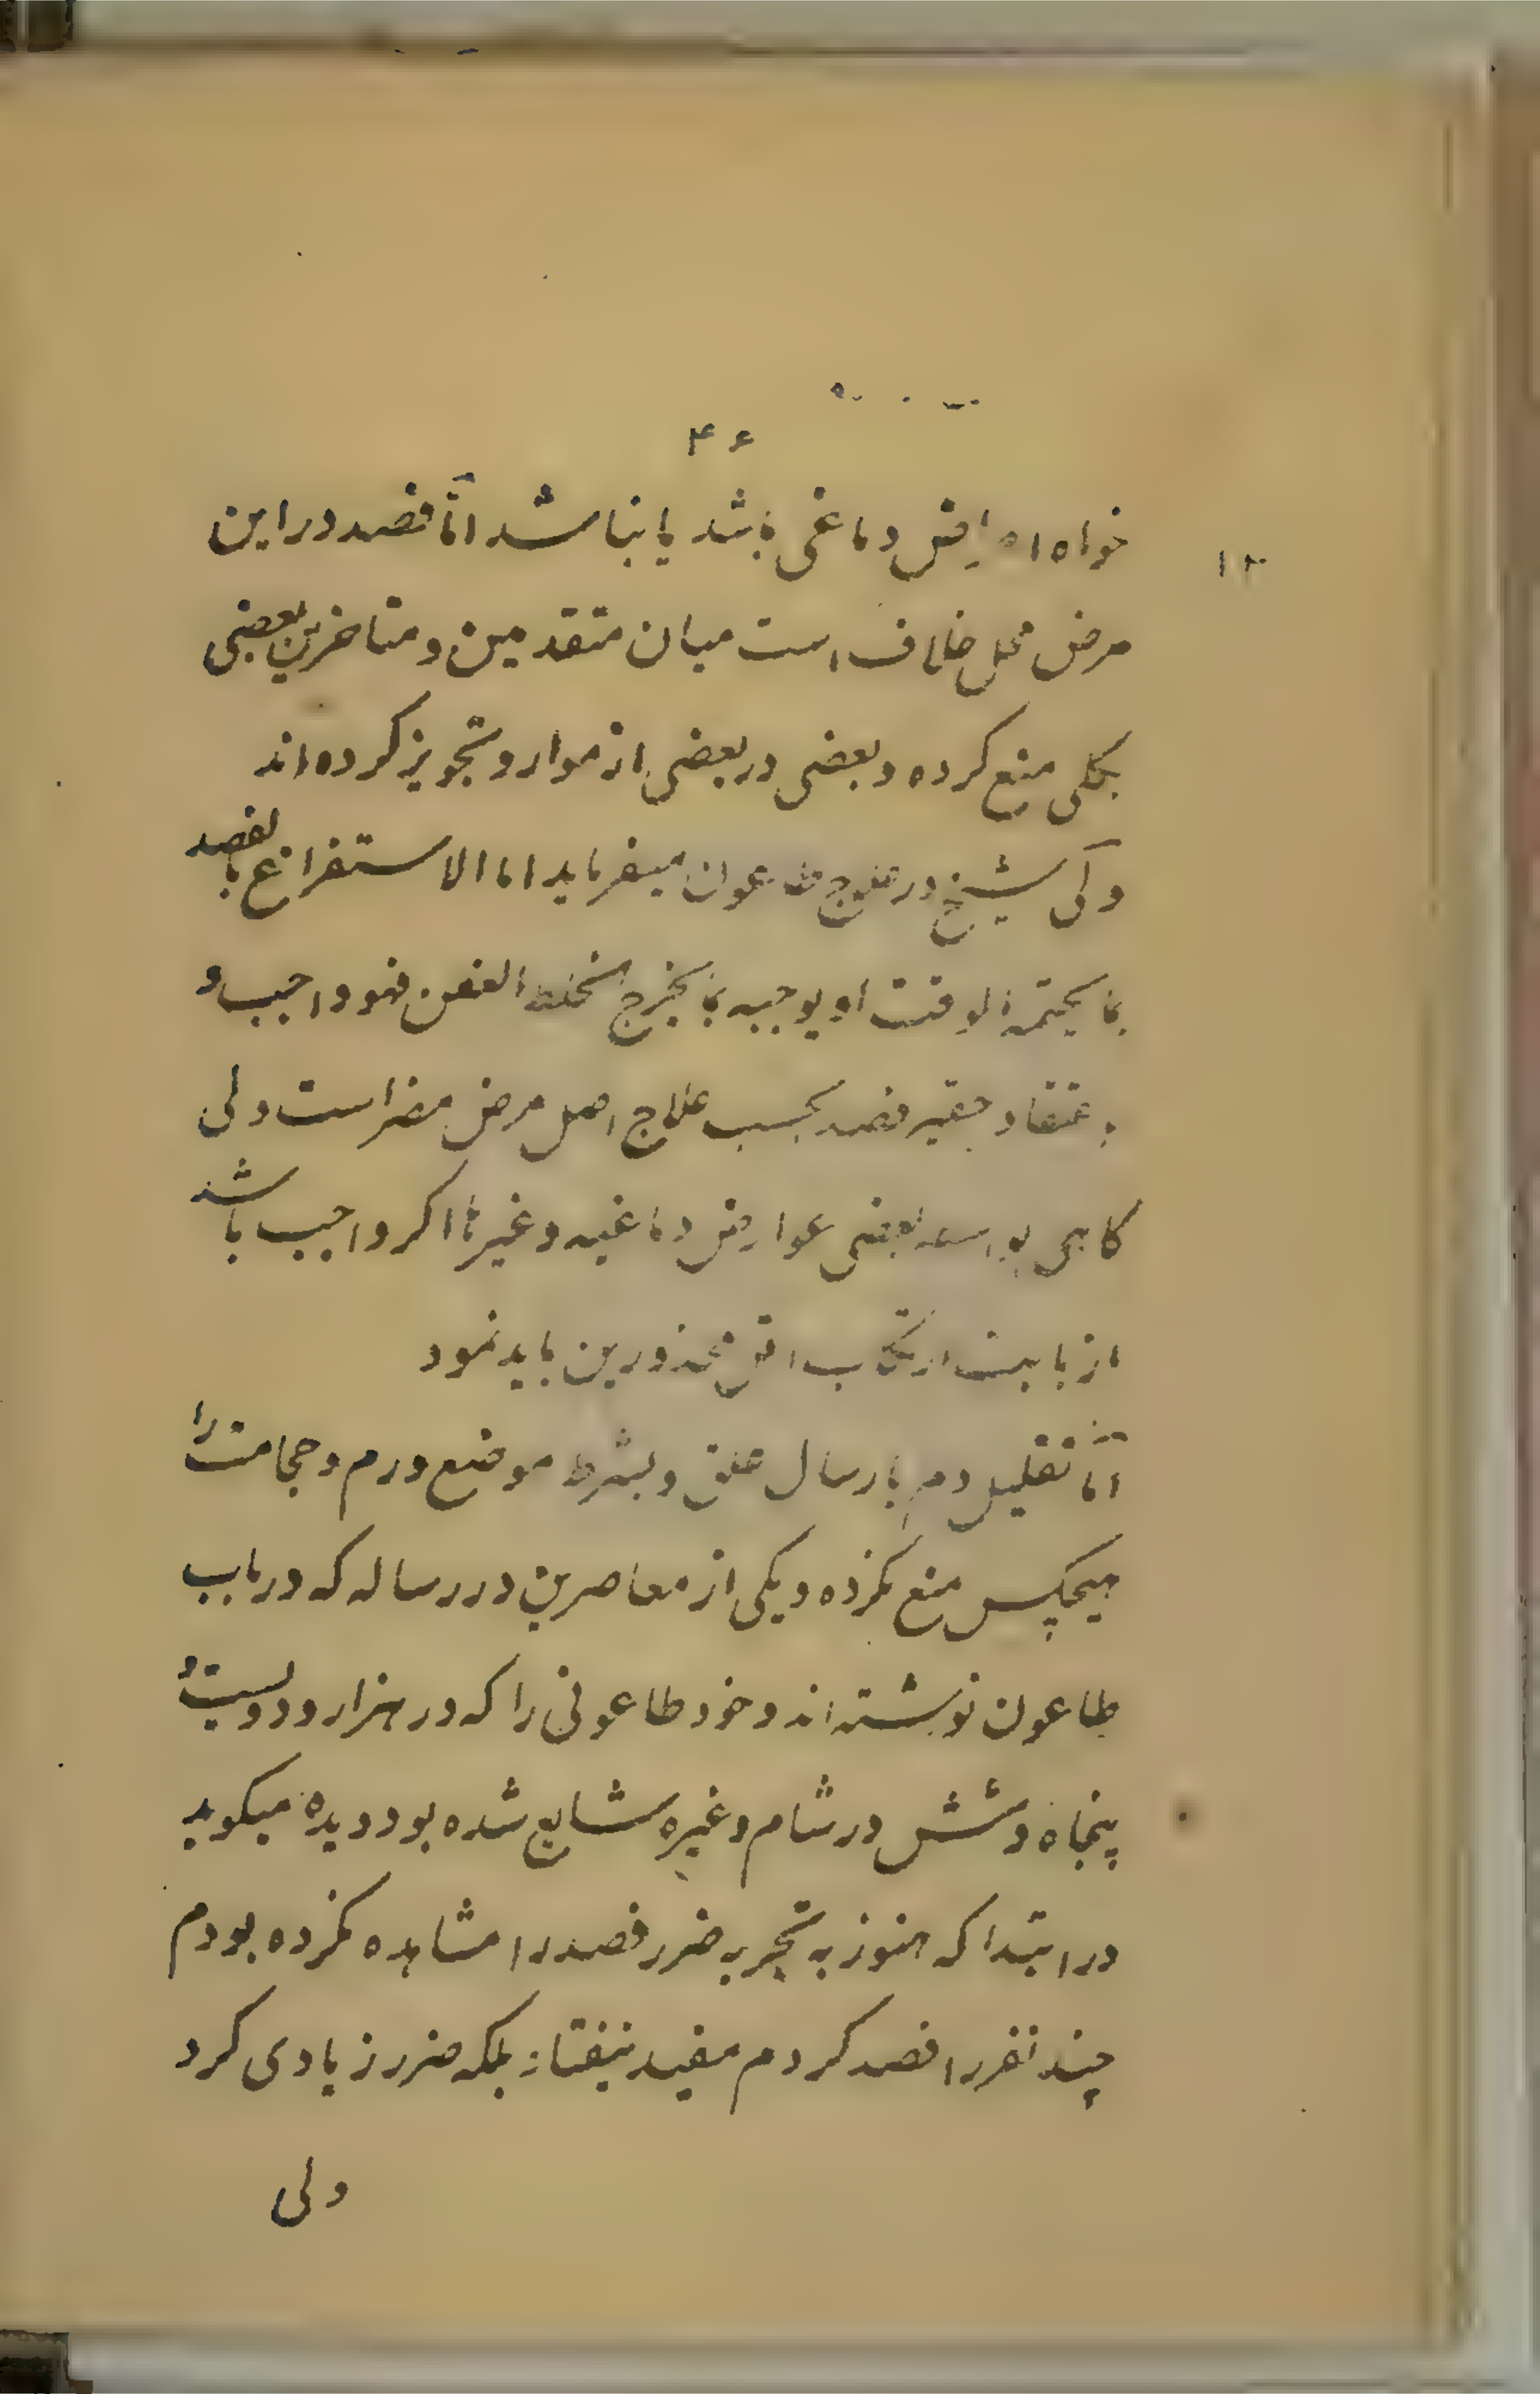 ۴۶
۱۳
خواه امراض دماغی باشد یا نباشد امّا فصد در این
مرض محل خلاف است میان متقدمین و متاخرین بعضی
بکلی منع کرده و بعضی در بعضی از موارد تجویز کرده‌اند
ولی شیخ در علاج طاعون میفرماید اما الاستفراغ بالفصد
بما یحتمله الوقت او یوجبه بما یخرج الخلط العفن فهو واجب و
باعتقاد حقیر فصد بحسب علاج اصل مرض مضر است ولی
کاهی بواسطه بعضی عوارض دماغیه و غیرها اکر واجب باشد
از بابت ارتکاب اقل محذورین باید نمود
امّا تقلیل دم بارسال علق و بشرط موضع ورم و حجامت را
هیچکس منع نکرده و یکی از معاصرین در رساله که در باب
طاعون نوشته‌اند و خود طاعونی را که در هزار و دویست و
پنجاه و شش در شام و غیره شایع شده بود دیده میکوید
در ابتدا که هنوز به تجربه ضرر فصد را مشاهده نکرده بودم
چند نفر را فصد کردم مفید نیفتاد بلکه ضرر زیادی کرد
ولی